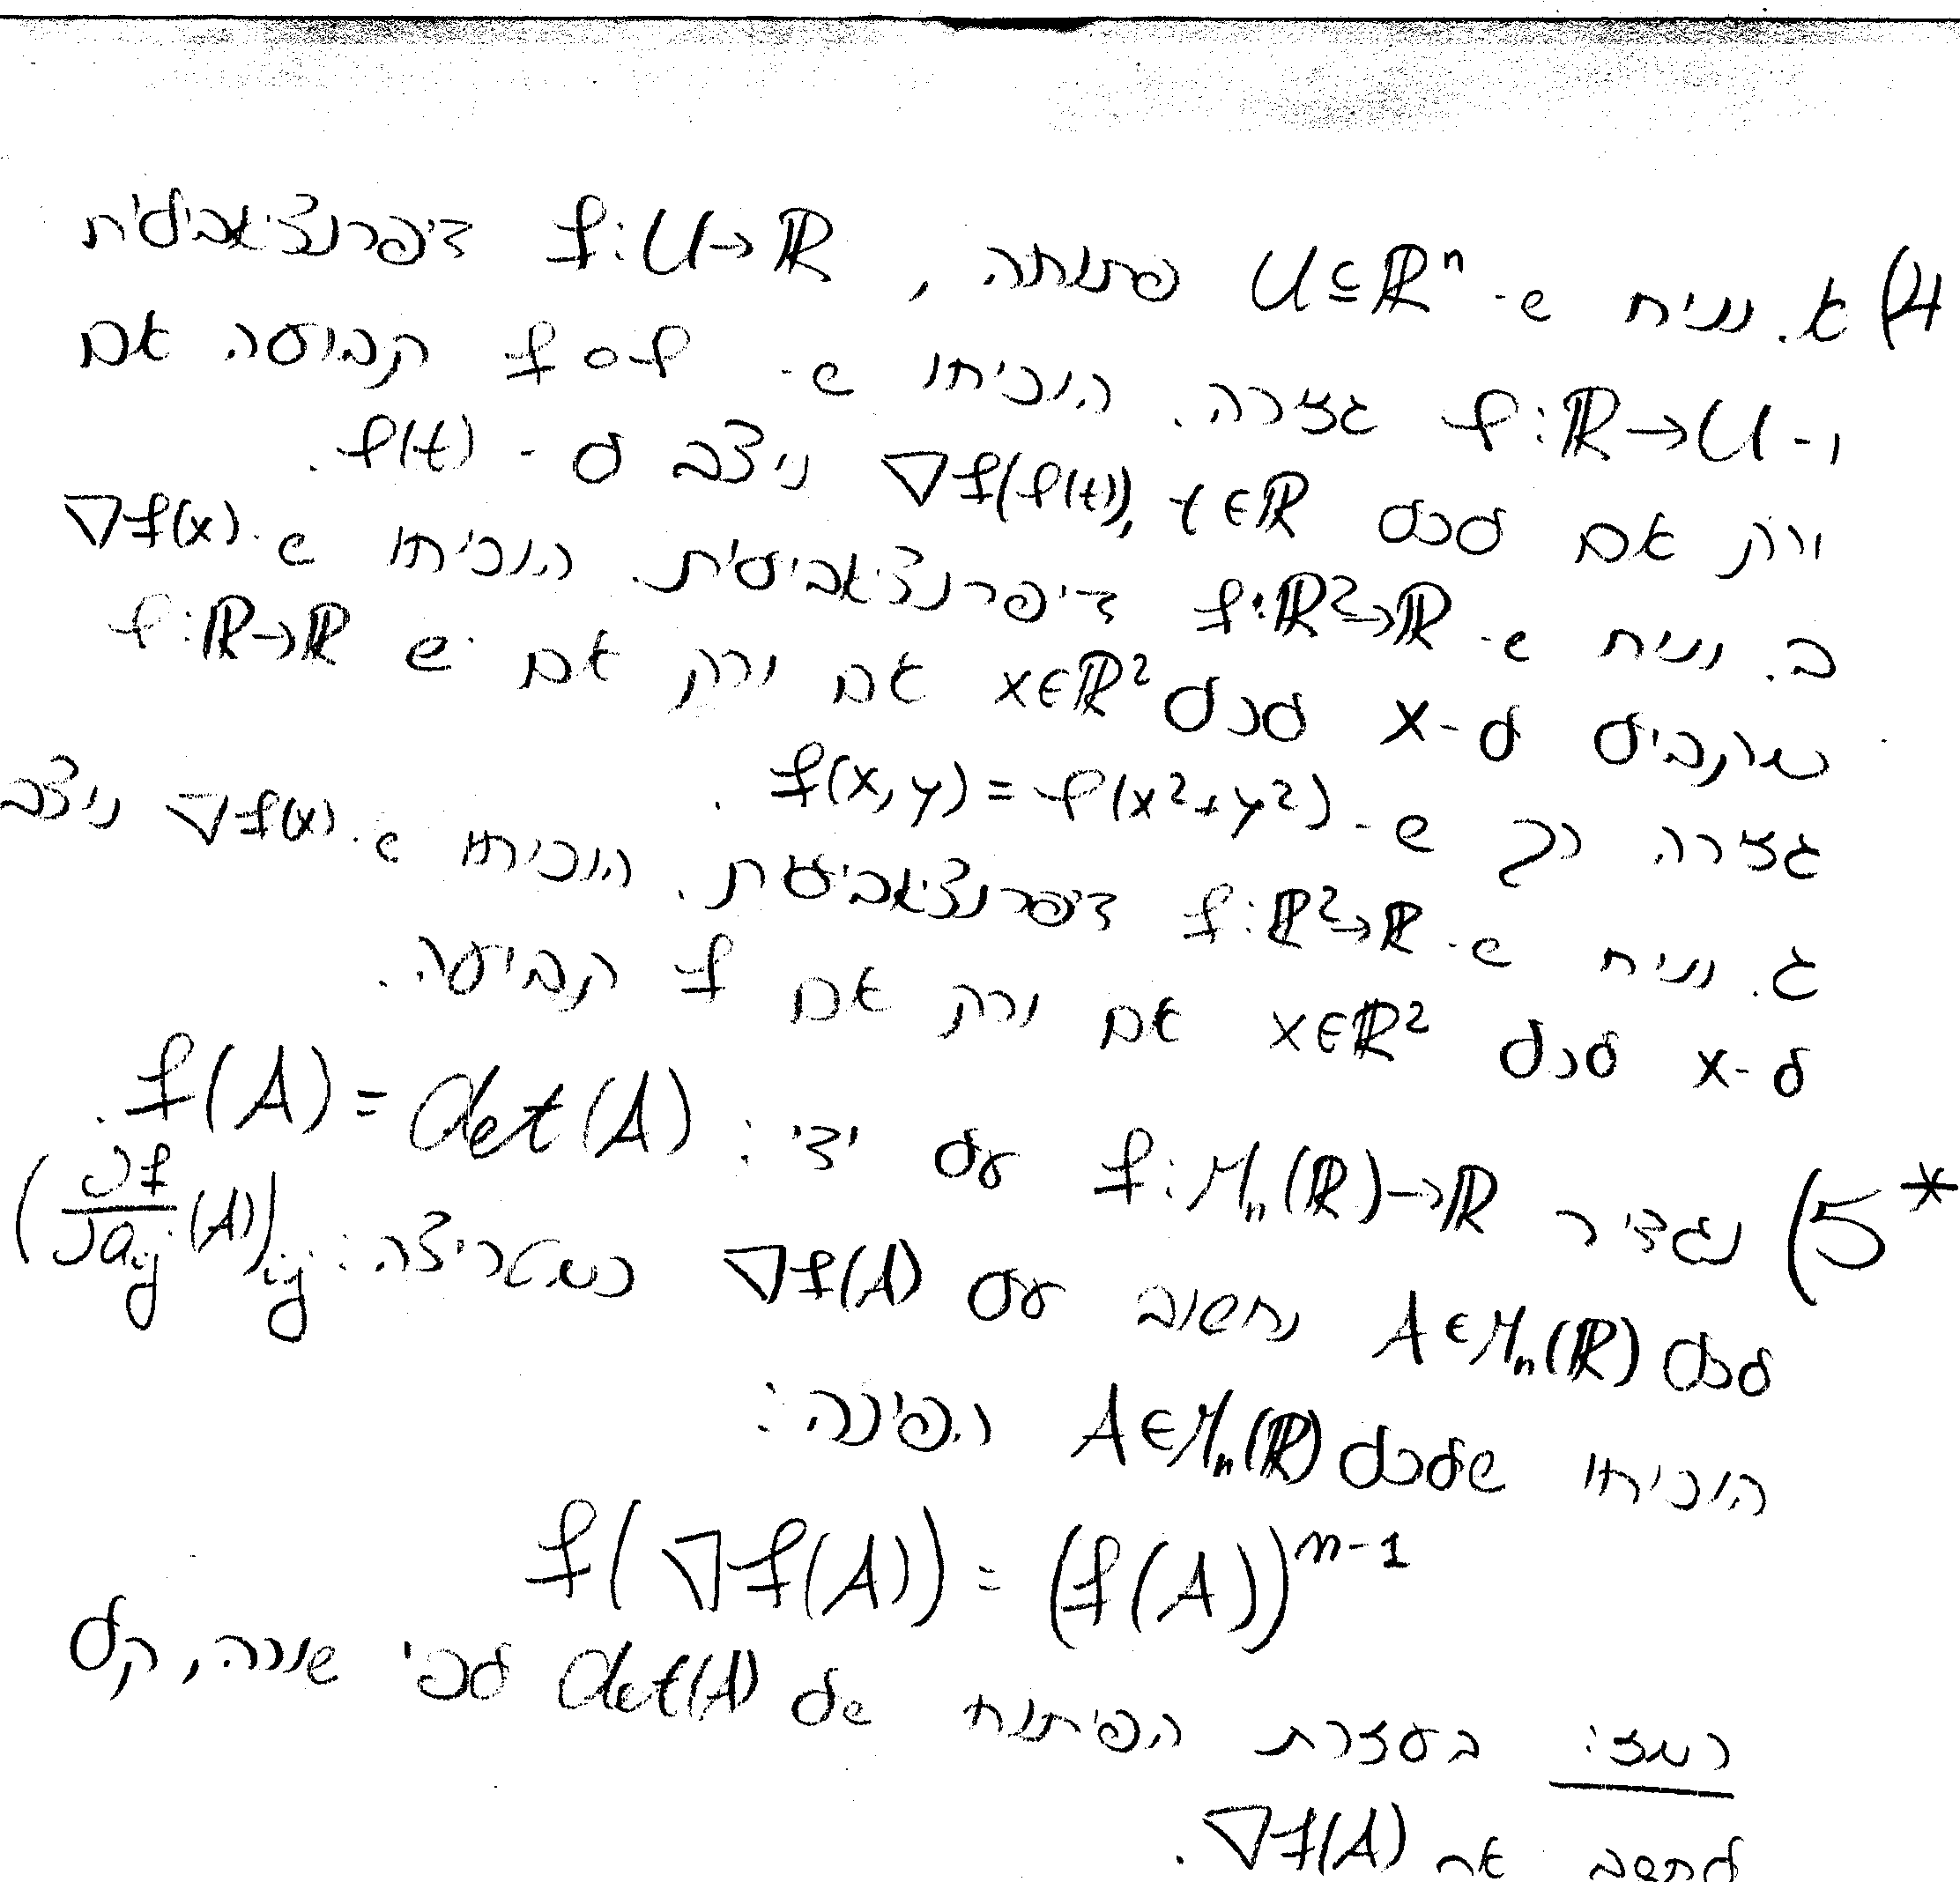 4) א. נניח ש- U⊆ℝⁿ פתוחה, f:U→ℝ דיפרנציאבילית
ו- φ:ℝ→U גזירה. הוכיחו ש- f∘φ קבועה אם
ורק אם לכל t∈ℝ, ∇f(φ(t)) ניצב ל- φ(t).
ב. נניח ש- f:ℝ²→ℝ דיפרנציאבילית. הוכיחו ש- ∇f(x)
מקביל ל-x לכל x∈ℝ² אם ורק אם ש- φ:ℝ→ℝ
גזירה כך ש- f(x,y)=φ(x²+y²).
ג. נניח ש- f:ℝ²→ℝ דיפרנציאבילית. הוכיחו ש- ∇f(x) ניצב
ל-x לכל x∈ℝ² אם ורק אם f קבועה.
5*) נגדיר f:M_n(ℝ)→ℝ על ידי: f(A)=det(A).
לכל A∈M_n(ℝ) נחשוב על ∇f(A) כמטריצה: (∂f/∂a_ij (A))_ij
הוכיחו שלכל A∈M_n(ℝ) הפיכה:
f(∇f(A)) = (f(A))^{n-1}
רמז: בעזרת הפיתוח של det(A) לפי שורה, קל
לחשב את ∇f(A).